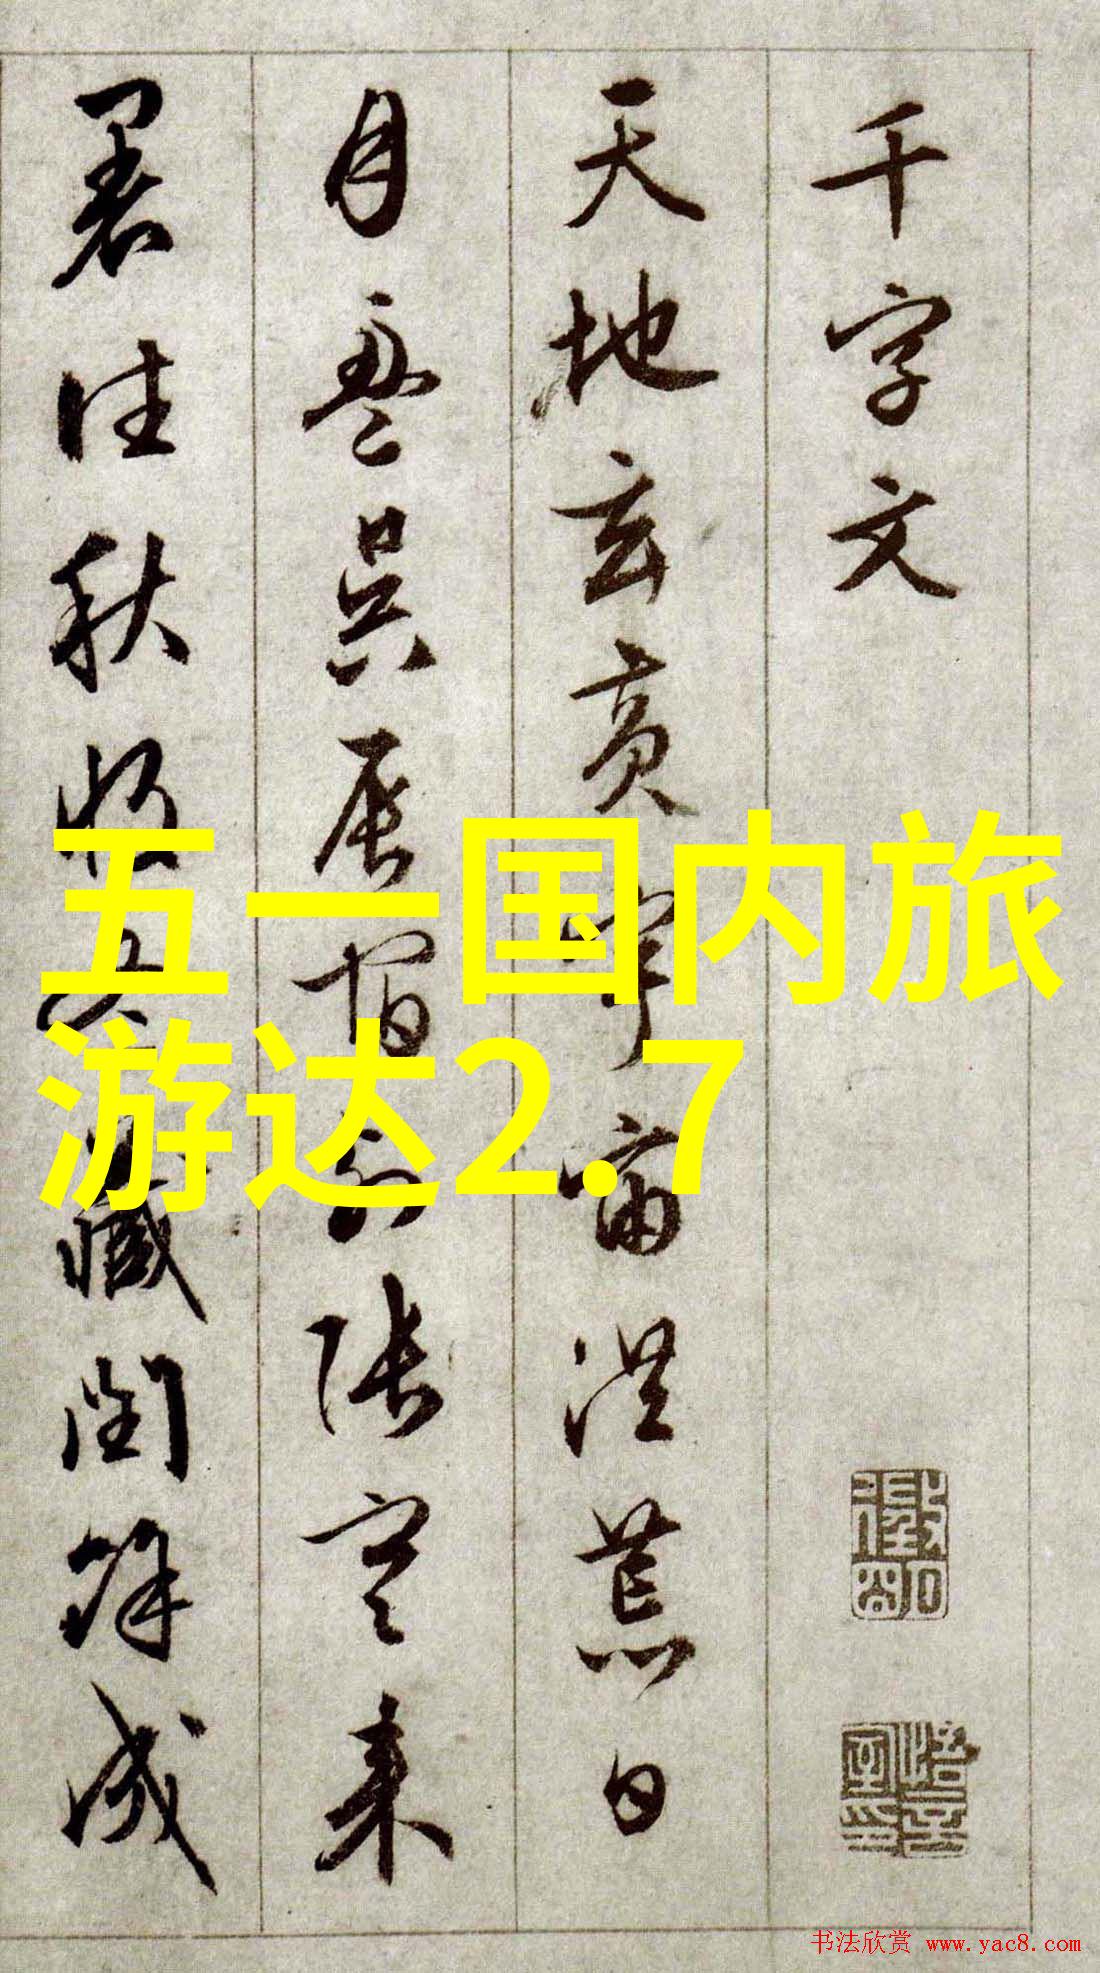 千字文
天地玄黄宇宙洪荒日
月盈昃辰宿列張寒来
暑往秋收冬藏閏餘成
五一国内旅
游达2.7
书法欣赏 www.yac8.com